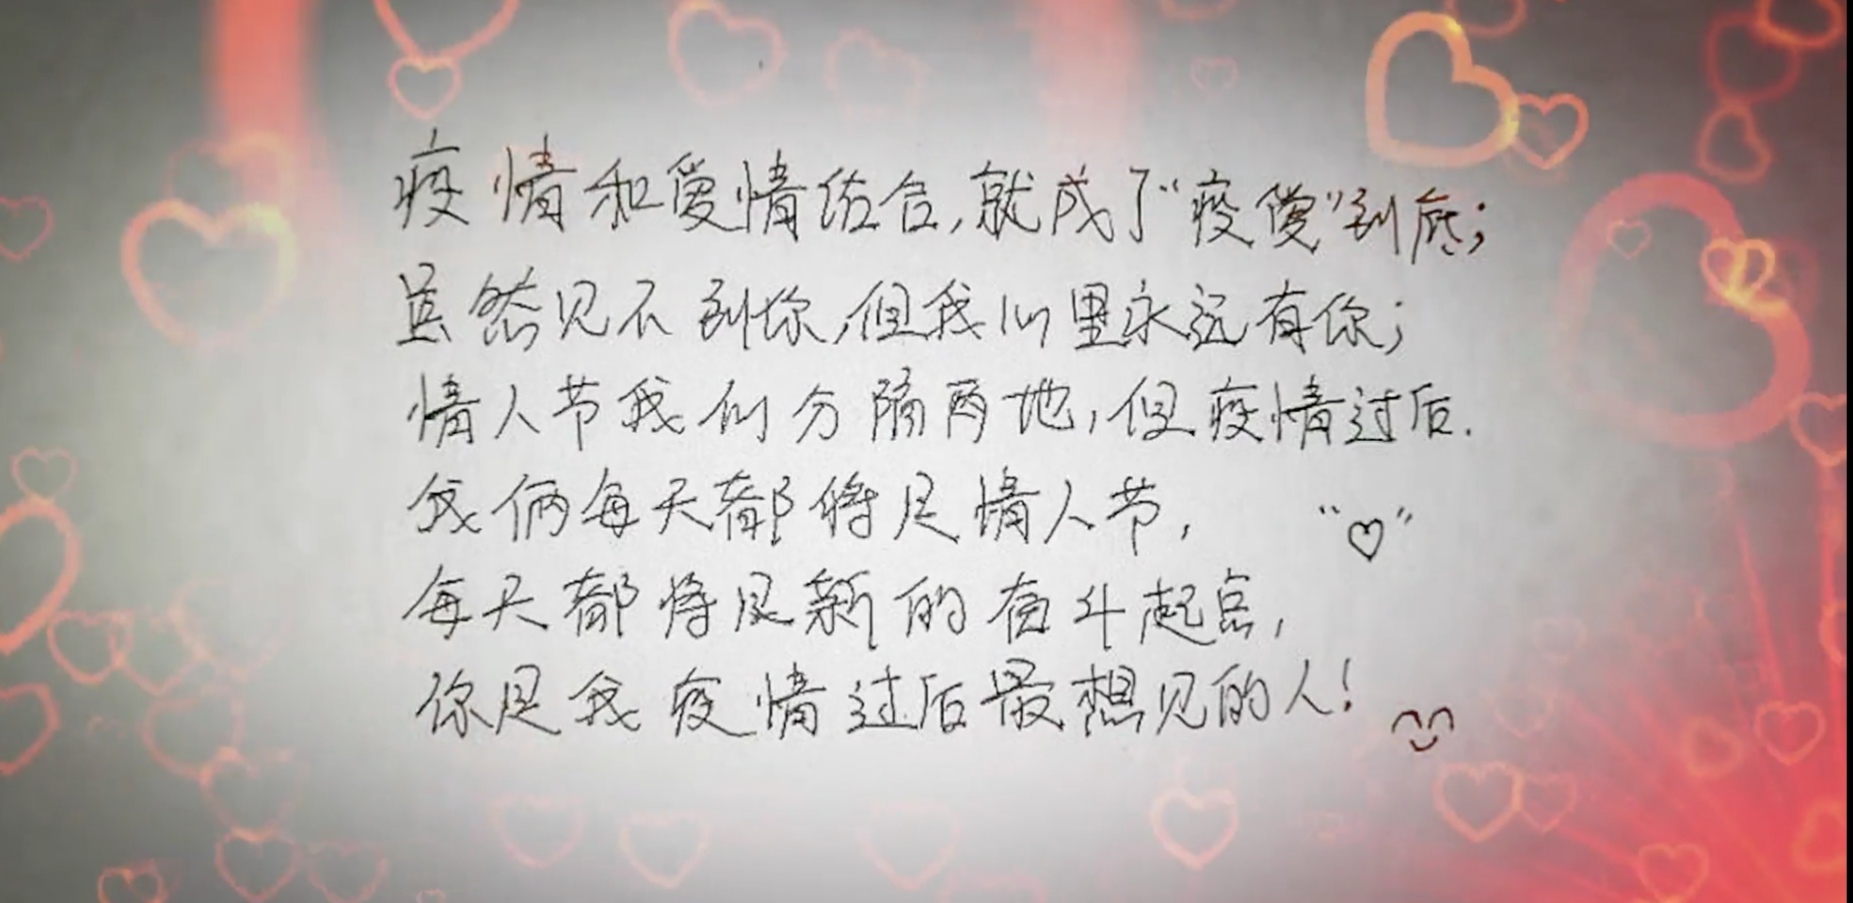 疫情和爱情结合,就成了“疫爱”到底;
虽然见不到你,但我心里永远有你;
情人节我们分隔两地,但疫情过后.
我俩每天都将是情人节, “♡”
每天都将是新的奋斗起点,
你是我疫情过后最想见的人!